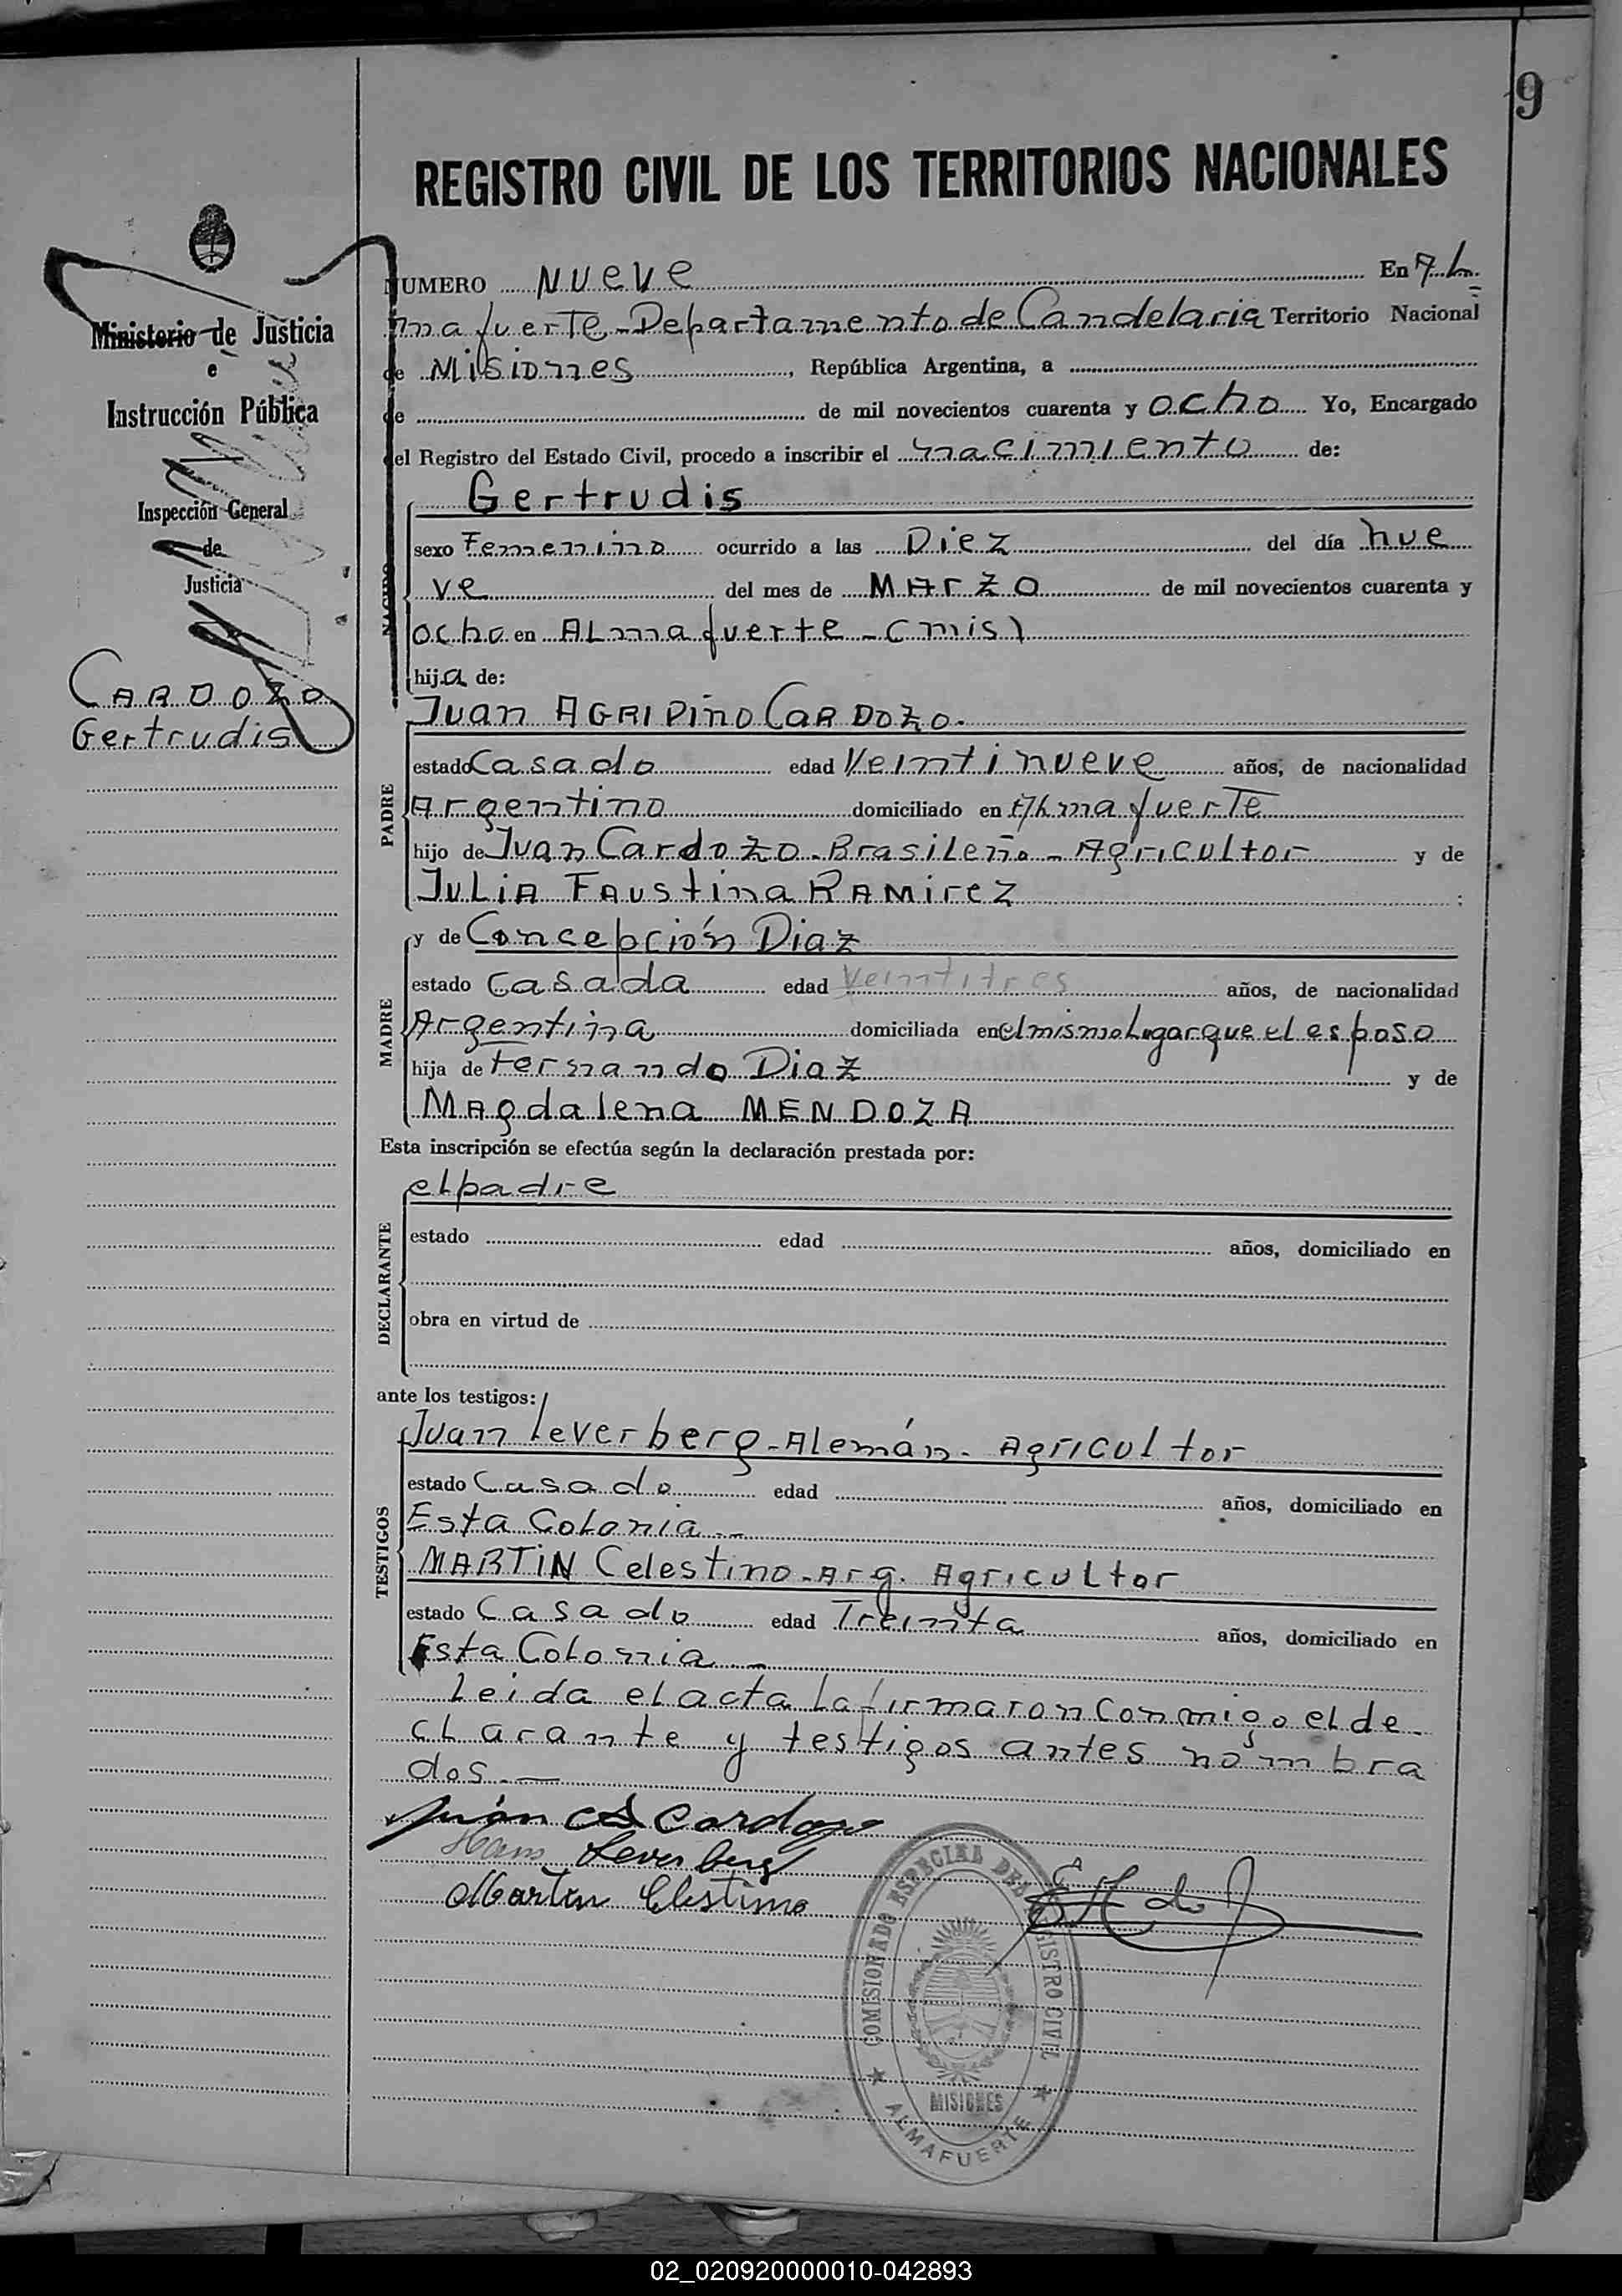 9
REGISTRO CIVIL DE LOS TERRITORIOS NACIONALES
Ministerio de Justicia
e
Instrucción Pública
Inspección General
de
Justicia
CARDOZO
Gertrudis
NUMERO NUeVe En AL
mafuerTe - Departamento de Candelaria Territorio Nacional
de Misiones, República Argentina, a
de de mil novecientos cuarenta y ocho Yo, Encargado
del Registro del Estado Civil, procedo a inscribir el nacimiento de:
Gertrudis
sexo Femenino ocurrido a las Diez del día nue
ve del mes de MArzo de mil novecientos cuarenta y
ocho en ALmafuerte - (mis)
hija de:
PADRE
Juan AGRIPino CARDOZO.
estado Casado edad Veintinueve años, de nacionalidad
Argentino domiciliado en ALmafuerTe
hijo de Juan Cardozo - Brasileño - Agricultor y de
JuLiA FAustina RAMirez ;
MADRE
y de Concepción Diaz
estado Casada edad Veintitres años, de nacionalidad
Argentina domiciliada en el mismo Lugar que el esposo
hija de Fernando Diaz y de
MAgdalena MENDOZA
Esta inscripción se efectúa según la declaración prestada por:
DECLARANTE
el padre
estado edad años, domiciliado en
obra en virtud de
ante los testigos:
TESTIGOS
Juan Leverberg - Alemán - Agricultor
estado Casado edad años, domiciliado en
Esta Colonia --
MARTIN Celestino - Arg. Agricultor
estado Casado edad Treinta años, domiciliado en
Esta Colonia -
Leida el acta la firmaron conmigo el de-
clarante y testigos antes nombra
dos. —
Juan A Cardozo
Hans Leverberg
Martin Celestino
COMISIONADO ESPECIAL DEL REGISTRO CIVIL
MISIONES
ALMAFUERTE
02_020920000010-042893